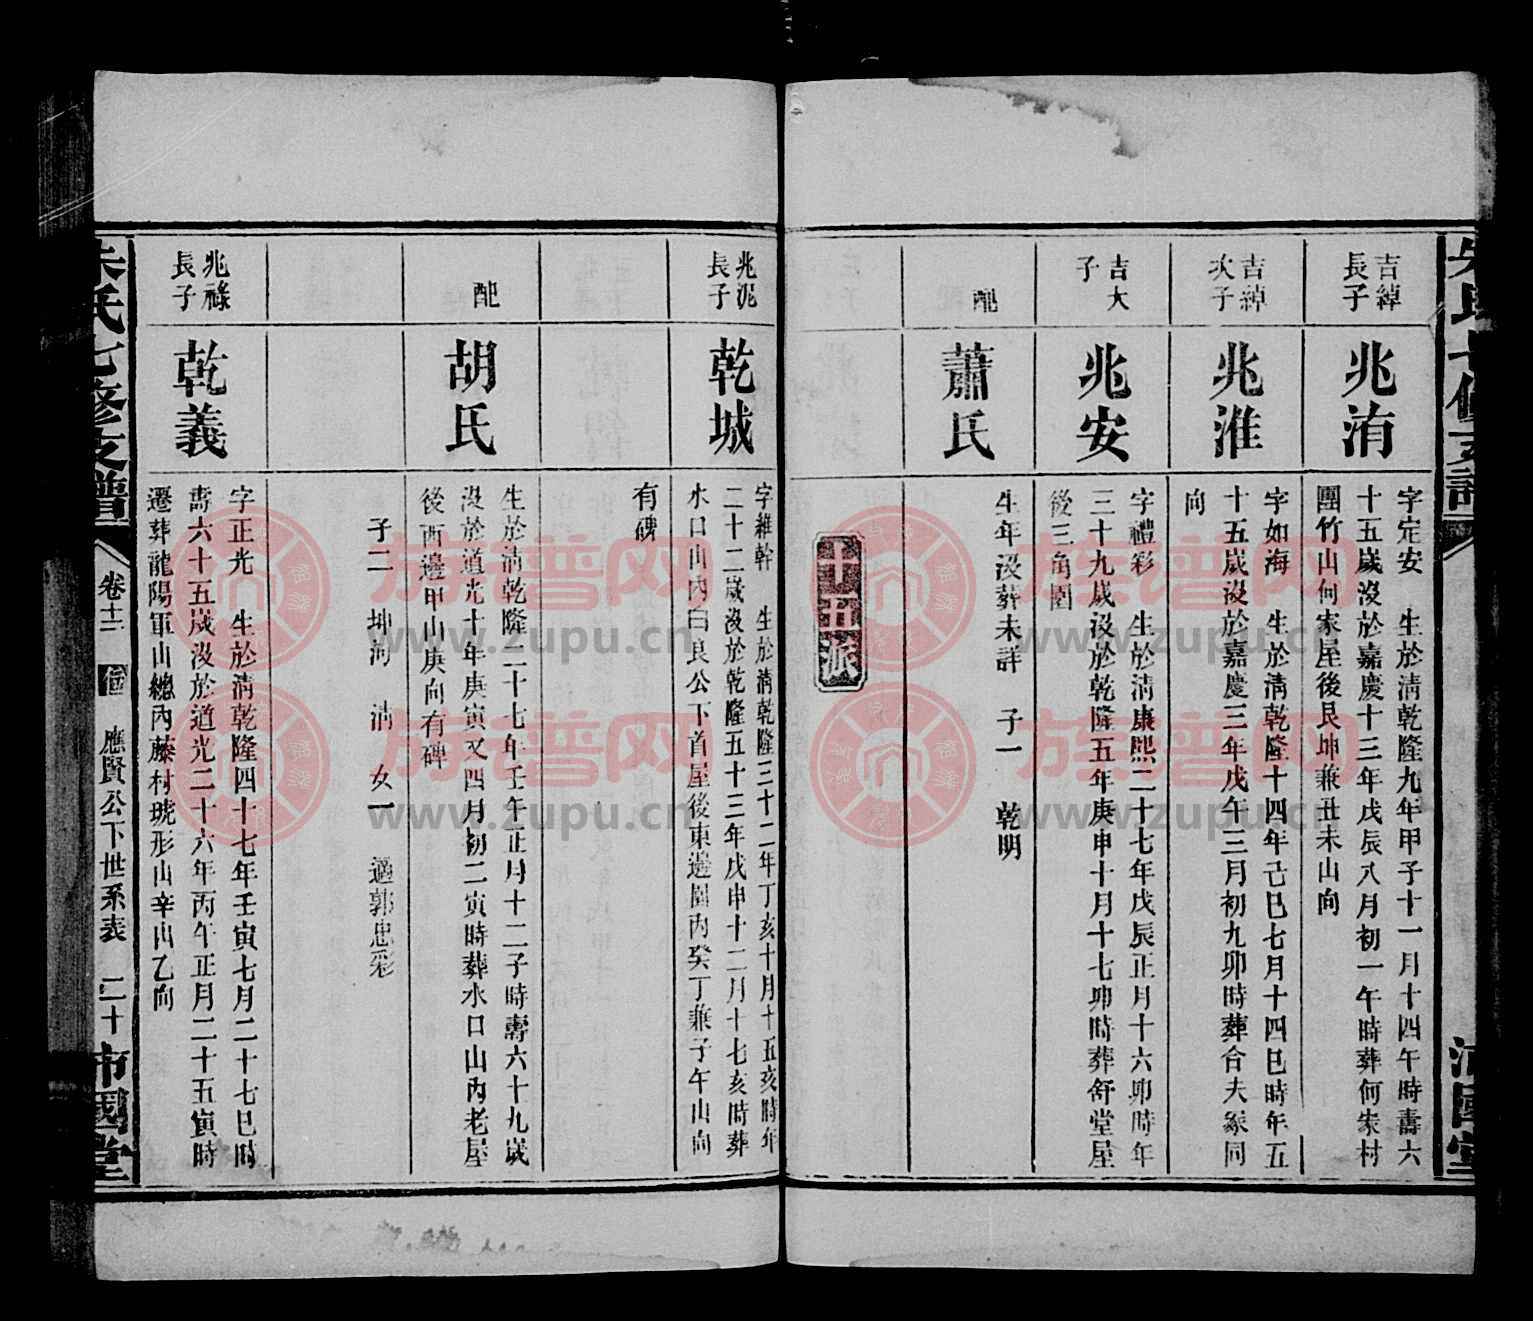 吉綽長子
兆洧
字定安　生於淸乾隆九年甲子十一月十四午時壽六
十五歲沒於嘉慶十三年戊辰八月初一午時葬何家村
團竹山何家屋後艮坤兼丑未山向
吉綽次子
兆淮
字如海　生於淸乾隆十四年己巳七月十四巳時年五
十五歲沒於嘉慶三年戊午三月初九卯時葬合夫冢同
向
吉大子
兆安
字禮彩　生於淸康熙二十七年戊辰正月十六卯時年
三十九歲沒於乾隆五年庚申十月十七卯時葬舒堂屋
後三角園
配
蕭氏
生年沒葬未詳　子一　乾明
兆泥長子
乾城
字維幹　生於淸乾隆三十二年丁亥十月十五亥時年
二十二歲沒於乾隆五十三年戊申十二月十七亥時葬
水口山內曰良公下首屋後東邊園內癸丁兼子午山向
有碑
配
胡氏
生於淸乾隆二十七年壬午正月十二子時壽六十九歲
沒於道光十年庚寅又四月初二寅時葬水口山內老屋
後西邊甲山庚向有碑
子二　坤河　淸　女一　適郭忠彩
兆祿長子
乾義
字正光　生於淸乾隆四十七年壬寅七月二十七巳時
壽六十五歲沒於道光二十六年丙午正月二十五寅時
遷葬龍陽軍山總內藤村琥形山辛山乙向
朱氏七修支譜
卷十二
應賢公下世系表　二十
沛國堂
族谱网
www.zupu.cn
族谱网
www.zupu.cn
族谱网
www.zupu.cn
族谱网
www.zupu.cn